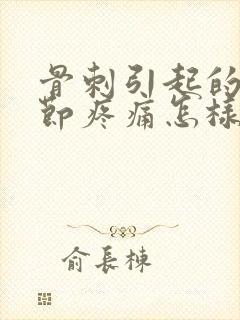 骨刺引起的
節疼痛怎樣
俞長棟